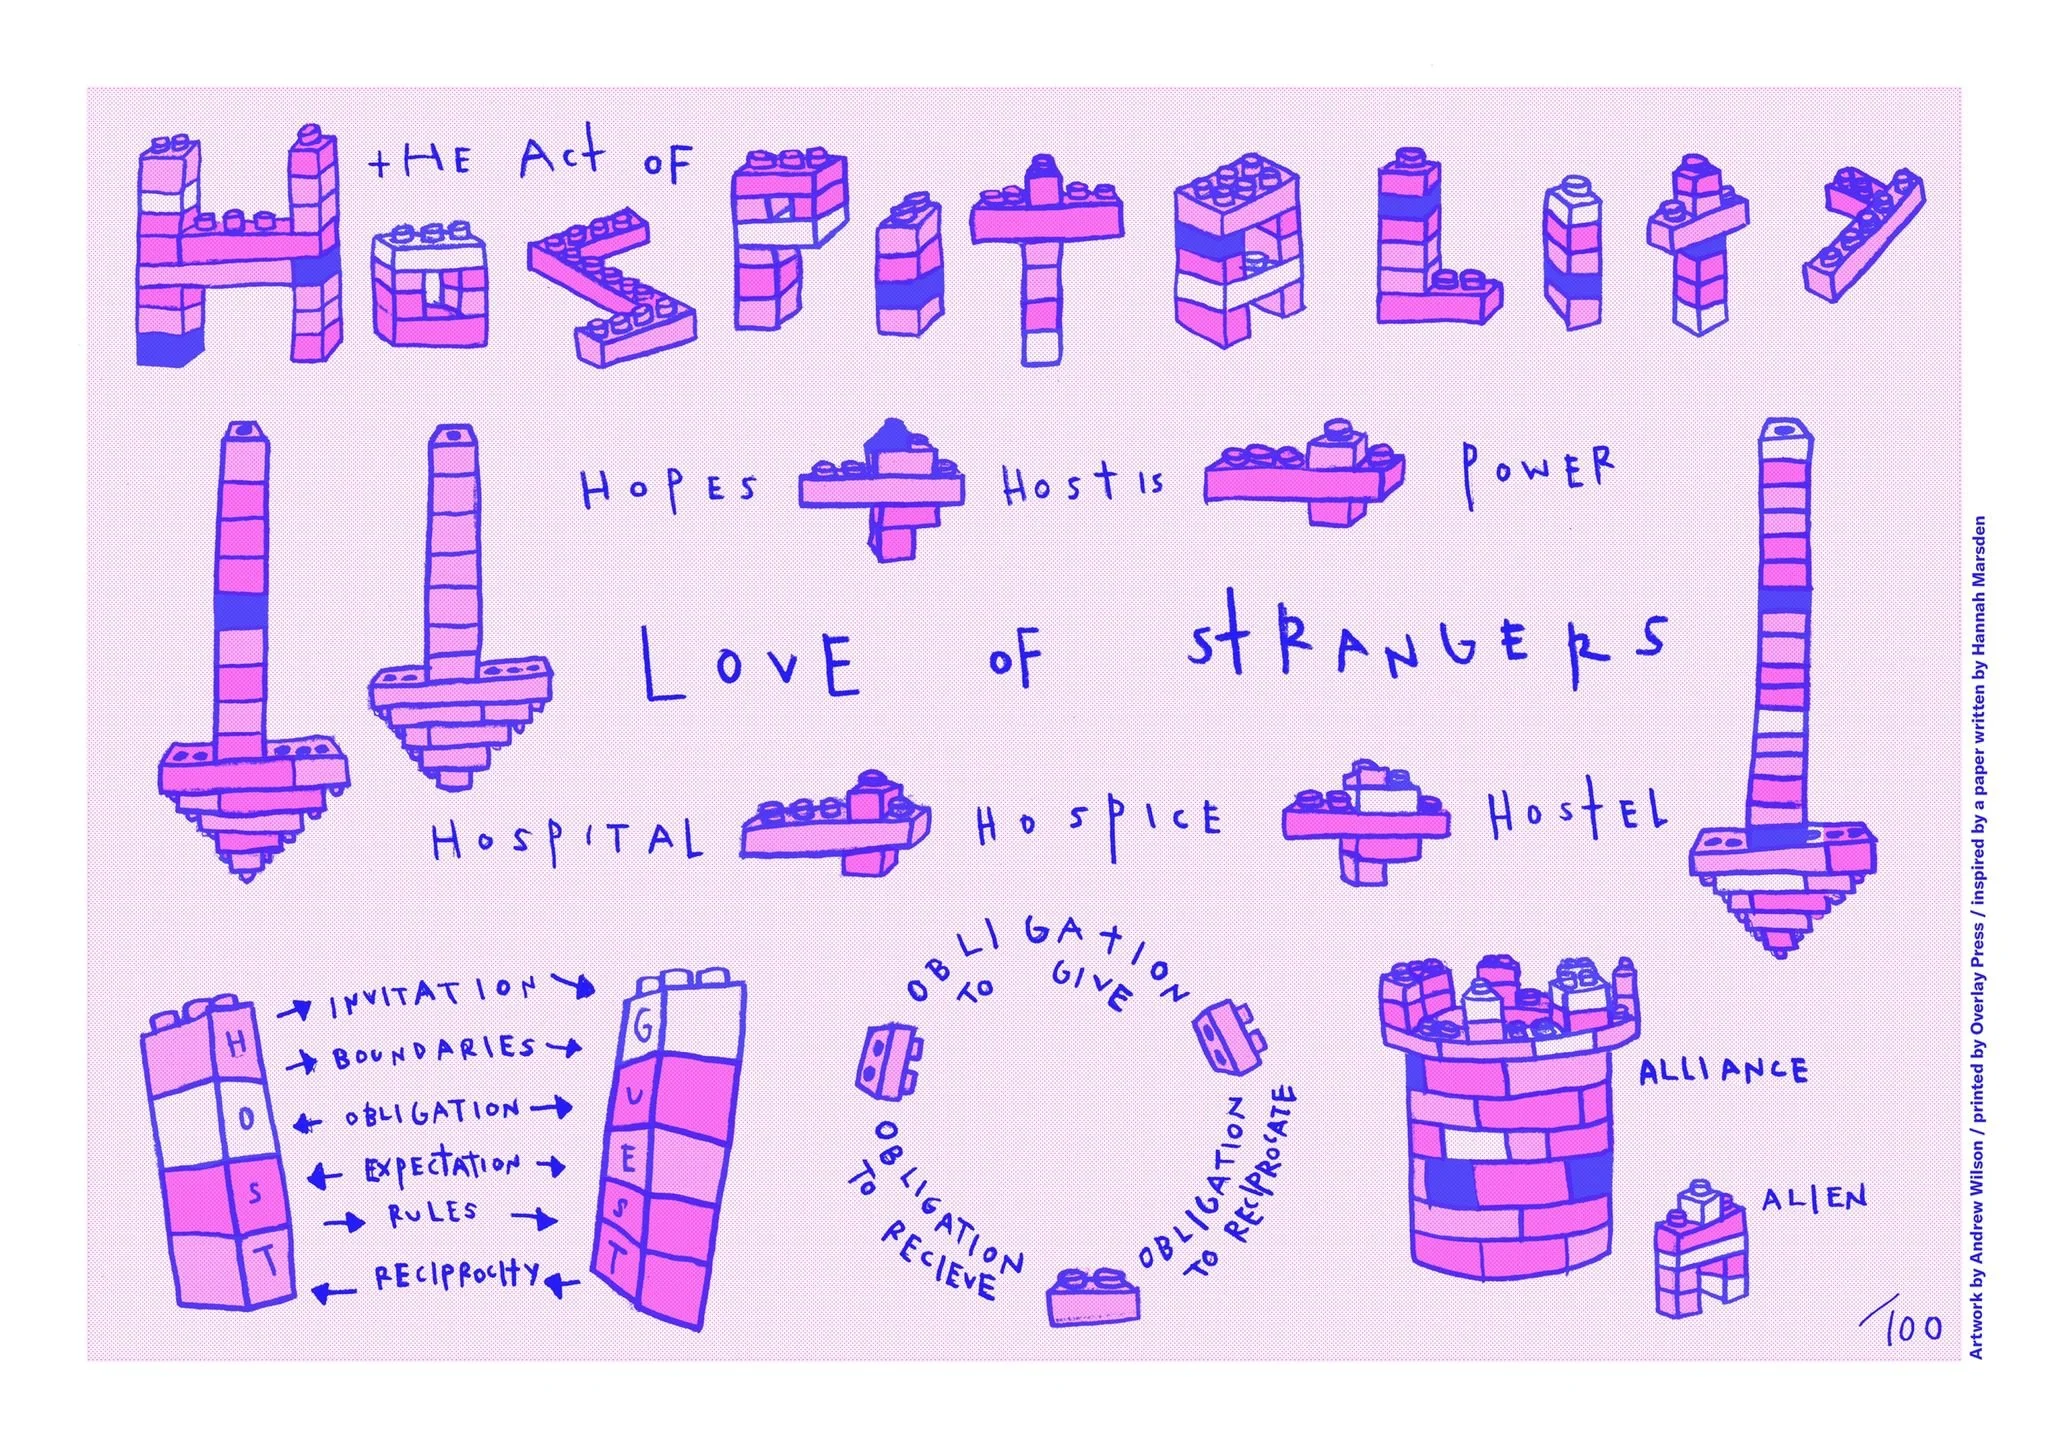 THE ACT OF
HOSPITALITY
HOPES HOSTIS POWER
LOVE OF STRANGERS
HOSPITAL HOSPICE HOSTEL
HOST
INVITATION
BOUNDARIES
OBLIGATION
EXPECTATION
RULES
RECIPROCITY
GUEST
OBLIGATION
TO GIVE
OBLIGATION
TO RECIPROCATE
OBLIGATION
TO RECIEVE
ALLIANCE
ALIEN
/100
Artwork by Andrew Wilson / printed by Overlay Press / inspired by a paper written by Hannah Marsden